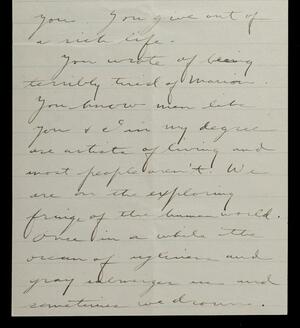 you. You give out of
a rich life.
You wrote of being
terribly tired of Marion.
You know men like
you & in my degree
are artists of living and
most people aren't. We
are on the exploring
fringe of the human world.
Once in a while the
ocean of ugliness and
gray submerges us and
sometimes we drown.